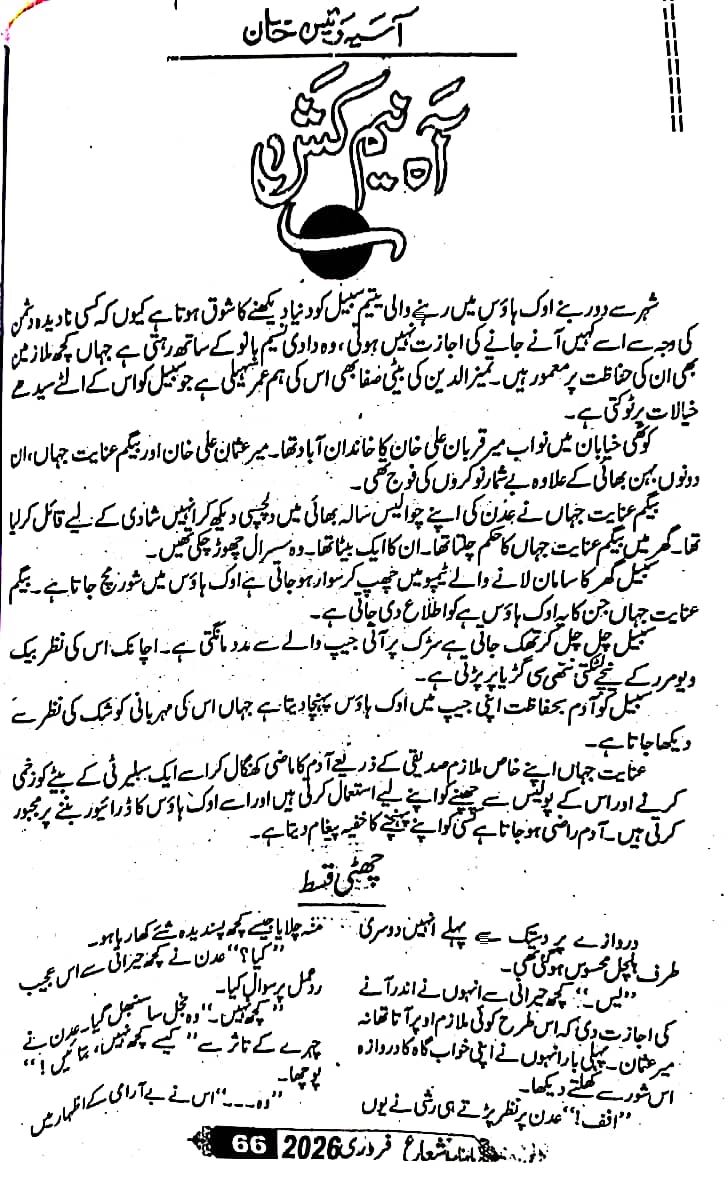 آسیہ رئیس خان
آہ نیم کش
شہر سے دور بنے اوک ہاؤس میں رہنے والی یتیم سبیل کو دنیا دیکھنے کا شوق ہوتا ہے کیوں کہ کسی نادیدہ دشمن
کی وجہ سے اسے کہیں آنے جانے کی اجازت نہیں ہوتی، وہ دادی نسیم بانو کے ساتھ رہتی ہے جہاں کچھ ملازمین
بھی ان کی حفاظت پر معمور ہیں۔ ضمیر الدین کی بیٹی صفا بھی اس کی ہم عمر سہیلی ہے جو سبیل کو اس کے الٹے سیدھے
خیالات پر ٹوکتی ہے۔
کوٹھی خیابان میں نواب میر قربان علی خان کا خاندان آباد تھا۔ میر عثمان علی خان اور بیگم عنایت جہاں، ان
دونوں بہن بھائی کے علاوہ بے شمار نوکروں کی فوج تھی۔
بیگم عنایت جہاں نے عدن کی اپنے چوالیس سالہ بھائی میں دلچسپی دیکھ کر انہیں شادی کے لیے قائل کر لیا
تھا۔ گھر میں بیگم عنایت جہاں کا حکم چلتا تھا۔ ان کا ایک بیٹا تھا۔ وہ سسرال چھوڑ چکی تھیں۔
سبیل گھر کا سامان لانے والے ٹیمپو میں چھپ کر سوار ہو جاتی ہے اوک ہاؤس میں شور مچ جاتا ہے۔ بیگم
عنایت جہاں جن کا یہ اوک ہاؤس ہے کو اطلاع دی جاتی ہے۔
سبیل چل چل کر تھک جاتی ہے سڑک پر آتی جیپ والے سے مدد مانگتی ہے۔ اچانک اس کی نظر بیک
ویو مرر کے نیچے لٹکتی ننھی سی گڑیا پر پڑتی ہے۔
سبیل کو آدم بحفاظت اپنی جیپ میں اوک ہاؤس پہنچا دیتا ہے جہاں اس کی مہربانی کو شک کی نظر سے
دیکھا جاتا ہے۔
عنایت جہاں اپنے خاص ملازم صدیقی کے ذریعے آدم کا ماضی کھنگال کر اسے ایک سیلبرٹی کے بیٹے کو زخمی
کرنے اور اس کے پولیس سے چھپنے کو اپنے لیے استعمال کرتی ہیں اور اسے اوک ہاؤس کا ڈرائیور بننے پر مجبور
کرتی ہیں۔ آدم راضی ہو جاتا ہے کسی کو اپنے پہنچنے کا خفیہ پیغام دیتا ہے۔
چھٹی قسط
دروازے پر دستک سے پہلے انہیں دوسری
طرف ہلچل محسوس ہو گئی تھی۔
”یس۔“ کچھ حیرانی سے انہوں نے اندر آنے
کی اجازت دی کہ اس طرح کوئی ملازم اوپر آتا تھا نہ
میر عثمان۔ پہلی بار انہوں نے اپنی خواب گاہ کا دروازہ
اس شور سے کھلتے دیکھا۔
”افف!“ عدن پر نظر پڑتے ہی رشی نے یوں
منہ چلایا جیسے کچھ پسندیدہ شے کھا رہا ہو۔
”کیا؟“ عدن نے کچھ حیرانی سے اس عجیب
ردعمل پر سوال کیا۔
”کچھ نہیں۔“ وہ خجل سا سنبھل گیا۔ عدن نے
چہرے کے تاثر سے ”کیسے کچھ نہیں، بتائیں!“
پوچھا۔
”وہ۔۔۔“ اس نے بے آرامی کے اظہار میں
ماہنامہ شعاع فروری 2026 66